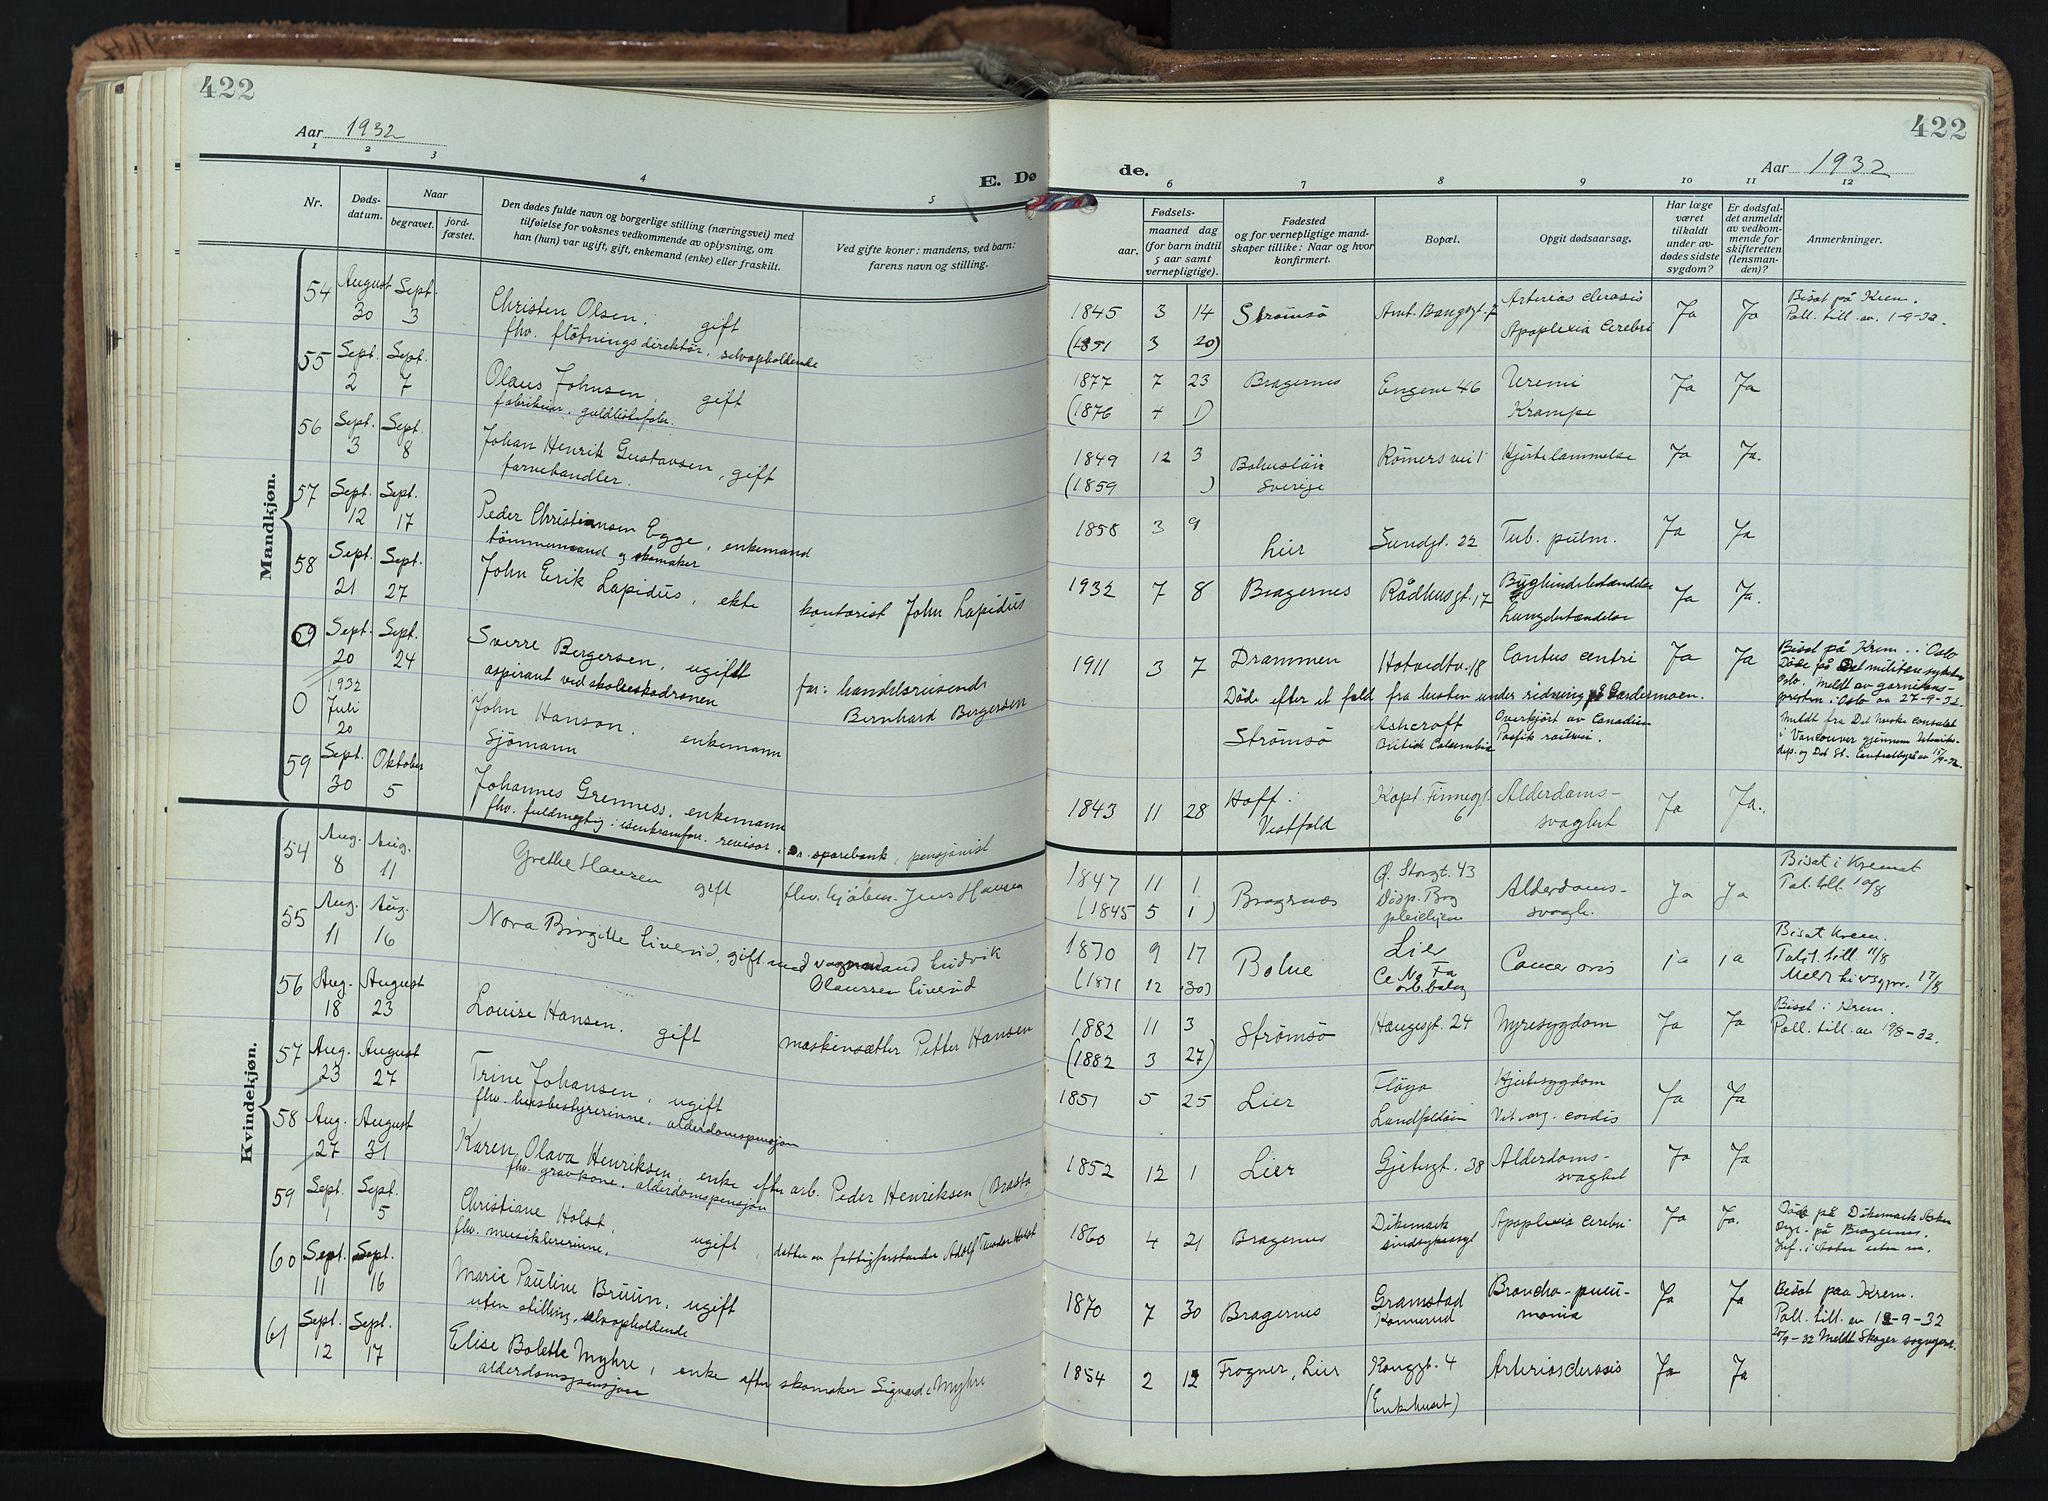 422
Aar 1932
1 2 3 4 5
E. Dø
Nr.
Døds-
datum.
Naar
begravet.
jord-
fæstet.
Den dødes fulde navn og borgerlige stilling (næringsvei) med
tilføielse for voksnes vedkommende av oplysning, om
han (hun) var ugift, gift, enkemand (enke) eller fraskilt.
Ved gifte koner: mandens, ved barn:
farens navn og stilling.
Mandkjøn.
54 August 30 Sept. 3 Christen Olsen, gift
fhv. fløtningsdirektør, selvopholdende
55 Sept. 2 Sept. 7 Olaus Johnsen, gift
fabrikeier, guldlistefabr.
56 Sept. 3 Sept. 8 Johan Henrik Gustavsen, gift
farvehandler.
57 Sept. 12 Sept. 17 Peder Christiansen Egge, enkemand
tømmermand og skomaker
58 Sept. 21 Sept. 27 John Erik Lapidus, ekte kontorist John Lapidus
59 Sept. 20 Sept. 24 Sverre Bergersen, ugift far: handelsreisende
aspirant ved skoleeskadronen Bernhard Bergersen
0 1932 Juli 20 John Hanson, enkemann
Sjømann
59 Sept. 30 Oktober 5 Johannes Grenness, enkemann
fhv. fuldmegtig i isenkramforr. revisor i Dr. sparebank, pensjonist
Kvindekjøn.
54 Aug. 8 Aug. 11 Grethe Hansen gift fhv. kjøbm. Jens Hansen
55 Aug. 11 Aug. 16 Nora Birgitte Liverud, gift med vognmand Ludvik
Olaussen Liverud
56 Aug. 18 August 23 Louise Hansen, gift maskensætter Petter Hansen
57 Aug. 23 August 27 Trine Johansen, ugift
fhv. husbestyrerinne, alderdomspensjon
58 Aug. 27 August 31 Karen Olava Henriksen, enke efter arb. Peder Henriksen (Brasta
fhv. gravkone, alderdomspensjon
59 Sept. 1 Sept. 5 Christiane Holst, ugift, datter av fattigforstander Adolf Theodor Holst
fhv. musiklererinne,
60 Sept. 11 Sept. 16 Marie Pauline Bruun, ugift
uten stilling, selvopholdende
61 Sept. 12 Sept. 17 Elise Bolette Myhre, enke efter skomaker Sigvard Myhre
alderdomspensjon
422
Aar 1932
de.
6 7 8 9 10 11 12
Fødsels-
aar.
maaned dag
(for barn indtil
5 aar samt
vernepligtige).
Fødested
og for vernepligtige mand-
skaper tillike: Naar og hvor
konfirmert.
Bopæl.
Opgit dødsaarsag.
Har læge
været
tilkaldt
under av-
dødes sidste
sygdom?
Er dødsfal-
det anmeldt
av vedkom-
mende for
skifteretten
(lensman-
den)?
Anmerkninger.
1845 3 14 Strømsø Amt. Bangsgt. 7 Arteriosclerosis Ja Ja Bisat på Krem.
(1851 3 20) Apoplexia cerebri Poll. till. av. 1-9-32.
1877 7 23 Bragernes Engene 46 Uremi Ja Ja
(1876 4 1) Krampe
1849 12 3 Bohuslän Rømers vei 1 Hjertelammelse Ja Ja.
(1859 ) Sverige
1858 3 9 Lier Sundgt. 22 Tub. pulm. Ja Ja
1932 7 8 Bragernes Rådhusgt. 17 Bughindebetændelse Ja Ja.
Lungebetændelse
1911 3 7 Drammen Hotvedtv. 18 Contus centri Ja Ja Bisat på Krem. i Oslo
Døde på Det militære sykehus
Oslo. Meldt av garnisons-
presten i Oslo av 27-9-32.
Døde efter et fald fra hesten under ridning på Gardermoen.
Strømsø Ashcroft Overkjørt av Canadian Meldt fra Det norske consulat
British Columbia Pasifik railwei. i Vancouver gjennem Utenriks-
dep. og Det St. Centralbyrå av 15/9-32.
1843 11 28 Hoff i Kapt. Finnegt. 6 Alderdoms- Ja Ja.
Vestfold svaghet
1847 11 1 Bragernes Ø. Storgt. 43 Alderdoms- Ja Ja Bisat i Kremat
(1845 5 1) Dødsp. Brag svagh. Pol. till. 10/8
pleiehjem
1870 9 17 Lier Cancer oris ia ia Bisat Krem.
(1871 12 30) Polit. till 11/8
17/8
1882 11 3 Strømsø Haugesgt. 24 Nyresygdom Ja Ja Bisat i Krem.
(1882 3 27) Poll. till. av 19/8-32.
1851 5 25 Lier Fløya Hjertesygdom Ja Ja
Vit. org. cordis
1852 12 1 Lier Gjetergt. 38 Alderdoms- Ja Ja
svaghet
1860 4 21 Bragernes Dikemark Apoplexia cerebri Ja Ja. Døde på Dikemark Asker
sindsykeasyl på Bragernes.
1870 7 30 Bragernes Gramstad Broncho-pneu- Ja Ja Bisat paa Krem.
Konnerud monia Poll. till. av 12-9-32
25/9-32 Meldt Skoger sogneprest.
1854 2 12 Frogner, Lier Kongsgt. 4 Arteriosclerosis Ja Ja
(Enkehuset)